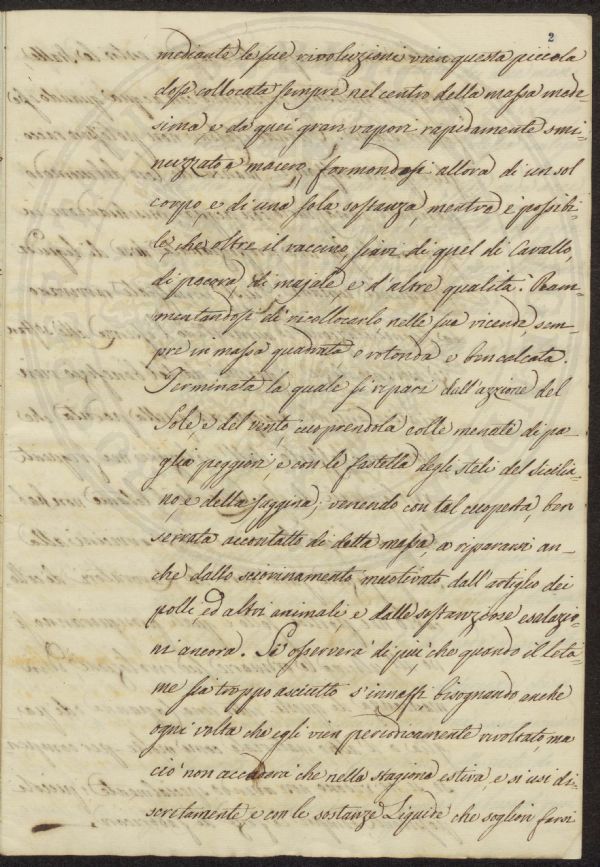 2
mediante le sue rivoluzioni vien questa piccola
dose collocata sempre nel centro della massa mede-
sima e da quei gran vapori rapidamente smi-
nuzzato e macero, formandosi allora di un sol
corpo, e di una sola sostanza, mentre è possibi-
le, che oltre il vaccino, siavi di quel di Cavallo,
di pecora, di majale e d'altre qualità. Ram-
mentandosi di ricollocarlo nelle sue vicende sem-
pre in massa quadrata o rotonda e ben calcata.
Terminata la quale si ripari dall'azzione del
Sole, e del vento, cuoprendola colle menate di pa-
glia peggiori, e con le fastella degli steli del Sicilia-
no, e della saggina; venendo con tal cuoperta, ben
serrata accontatto di detta massa, a ripararsi an-
che dallo scuvinamento, muotivato dall'artiglio dei
polli, ed altri animali, e dalle sostanziose esalazio-
ni ancora. Si osserverà di più, che quando il leta-
me sia troppo asciutto s'innaffi bisognando anche
ogni volta che egli vien periodicamente rivoltato, ma
ciò non accaderà che nella stagione estiva, e si usi di-
scretamente e con le sostanze Liquide che soglion farsi